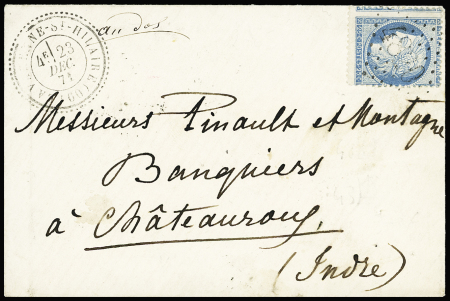 au dos
NE-ST-HILAIRE
4E
23
DEC.
Messieurs Pinault et Montagne
Banquiers
à Châteauroux,
(Indre)